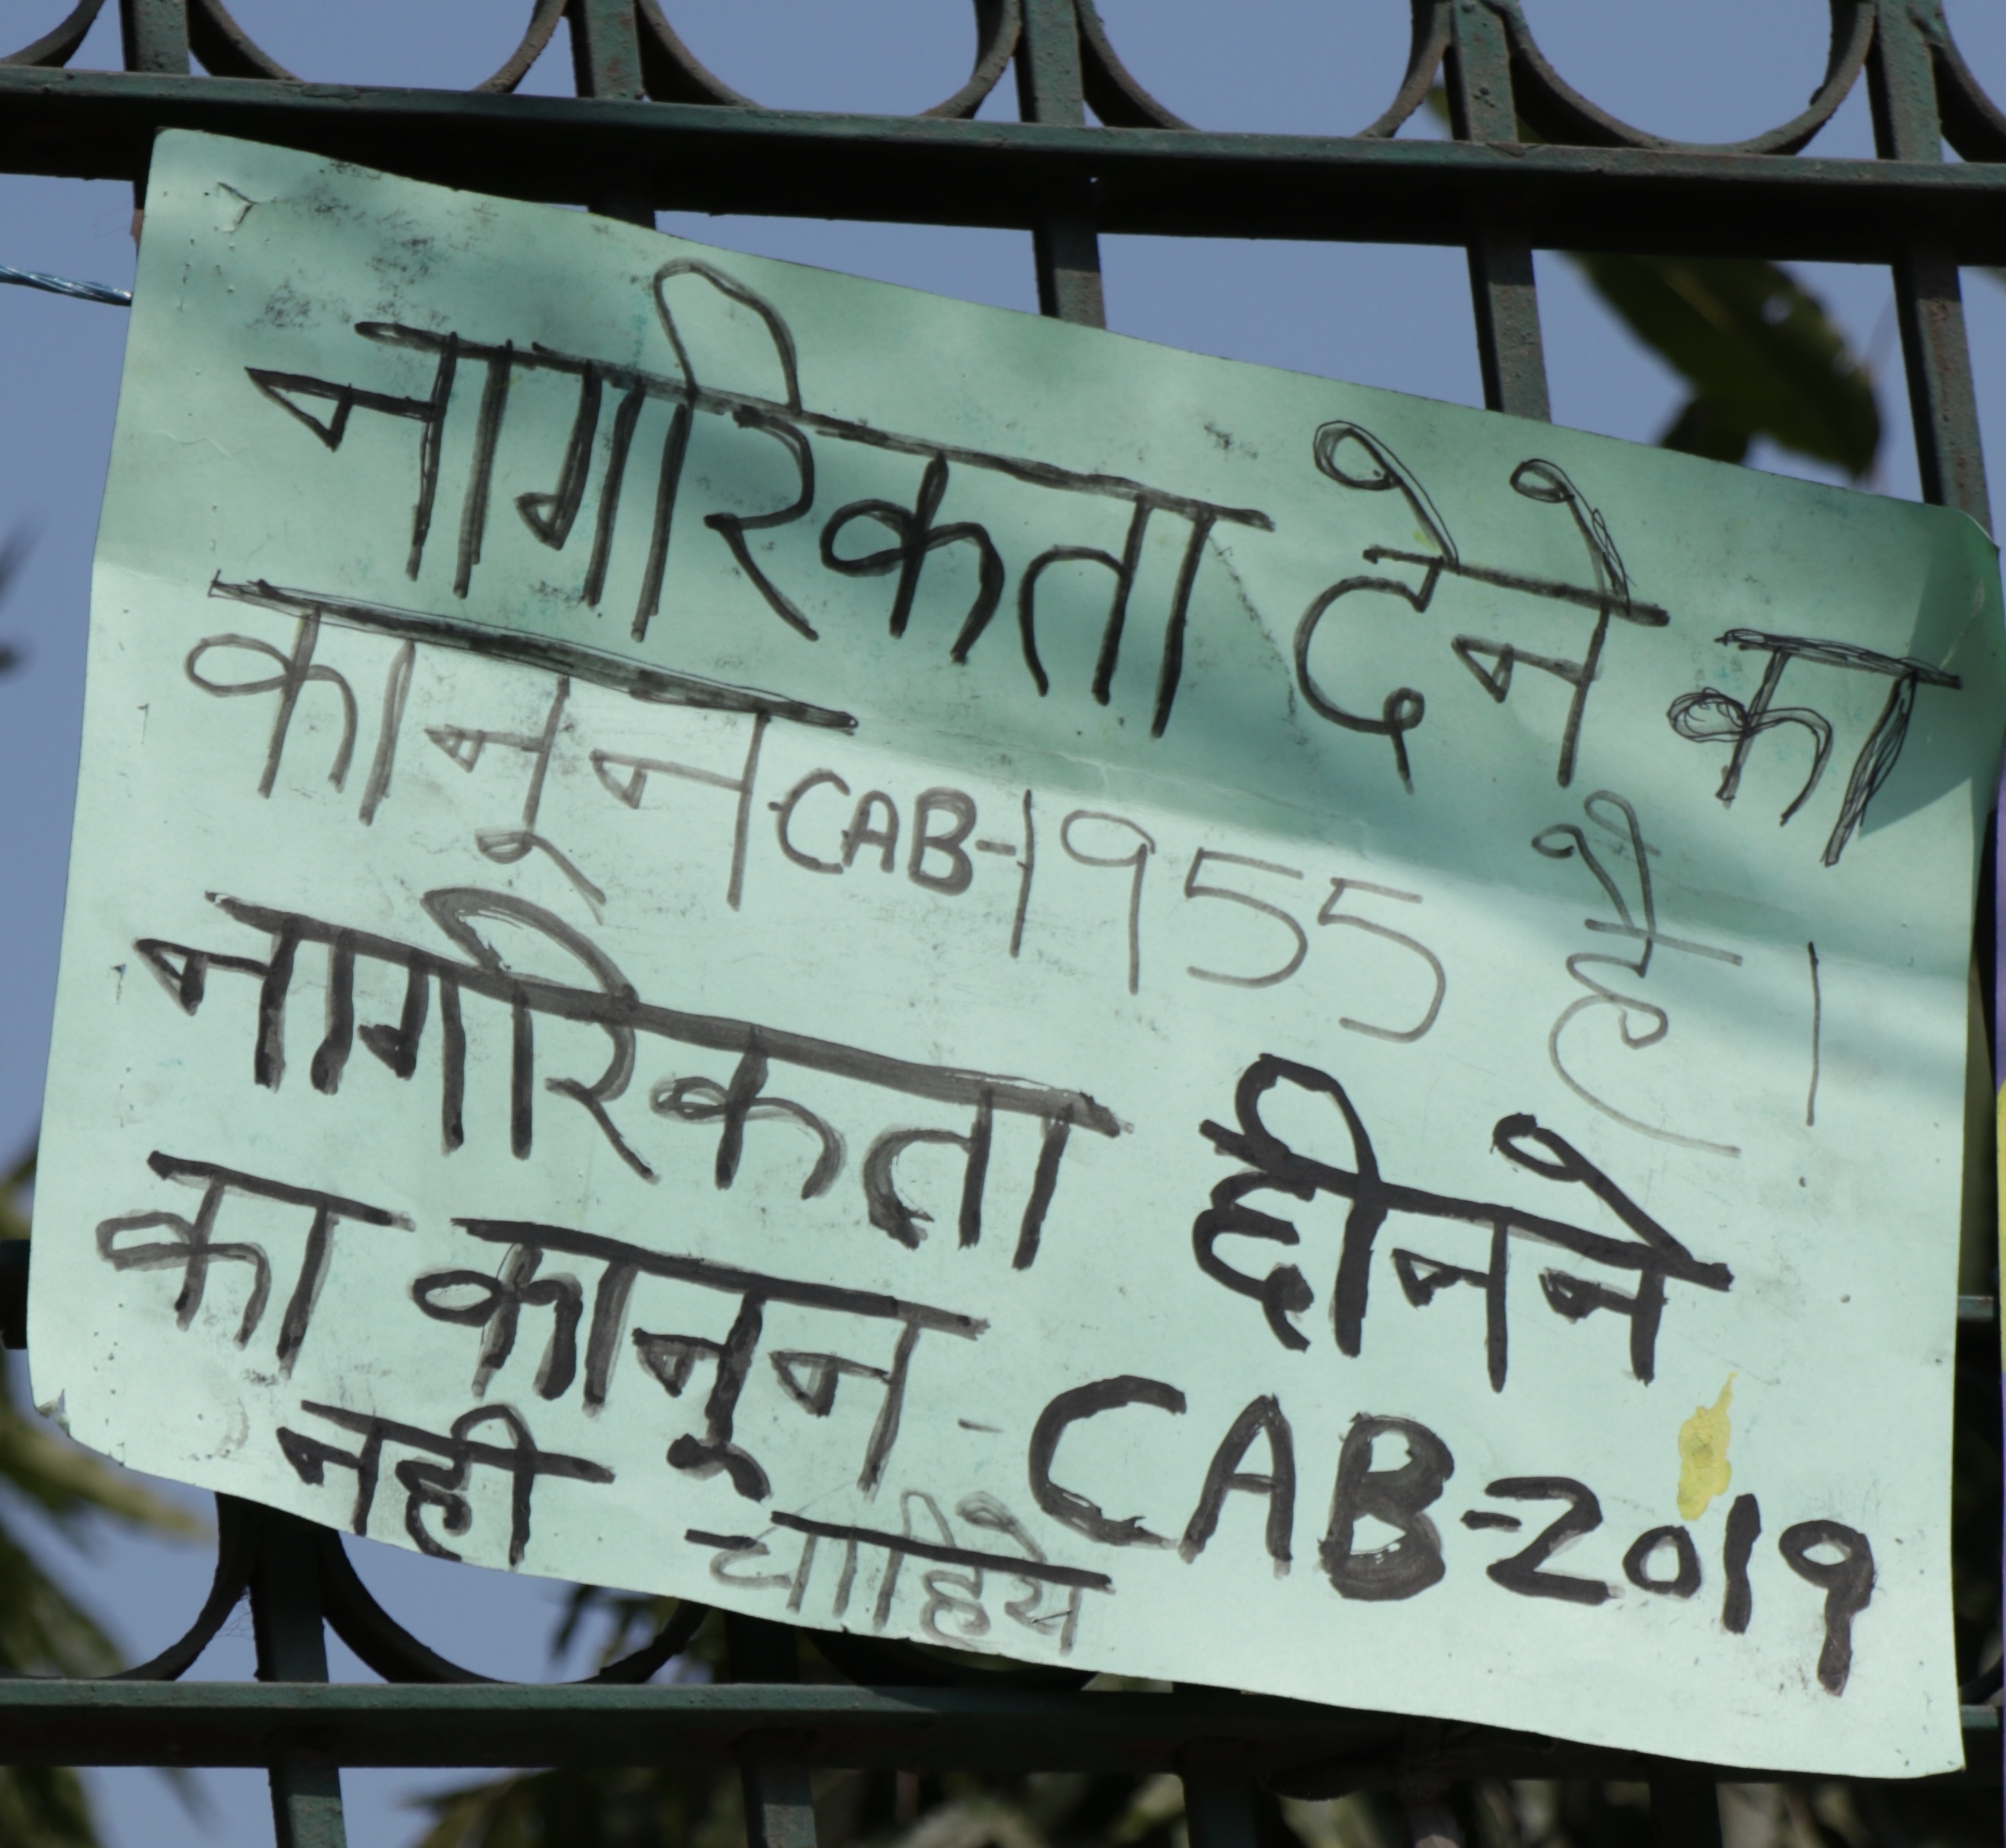 नागरिकता देने का
कानून CAB-1955 है।
नागरिकता छीनने
का कानून - CAB-2019
नही चाहिये